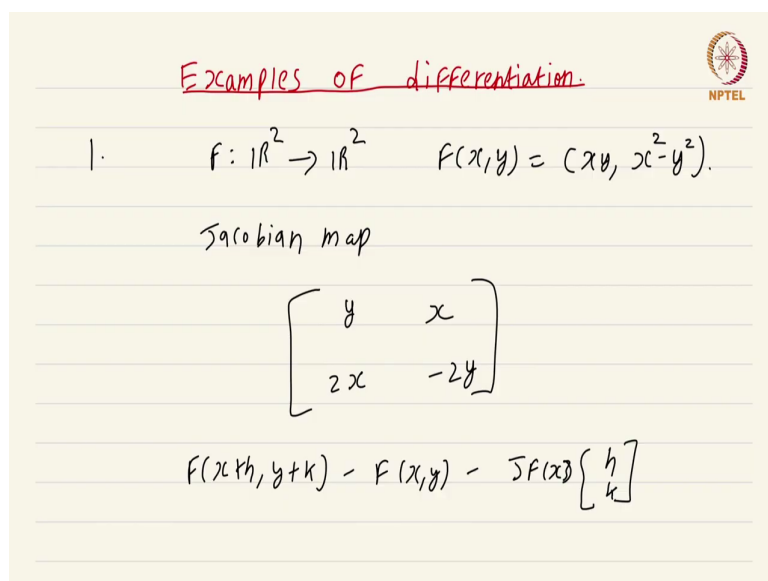 Examples of differentiation.
NPTEL
1. F: ℝ² → ℝ² F(x,y) = (xy, x²-y²).
Jacobian map
[ y x
2x -2y ]
F(x+h, y+k) - F(x,y) - JF(x) [ h
k ]